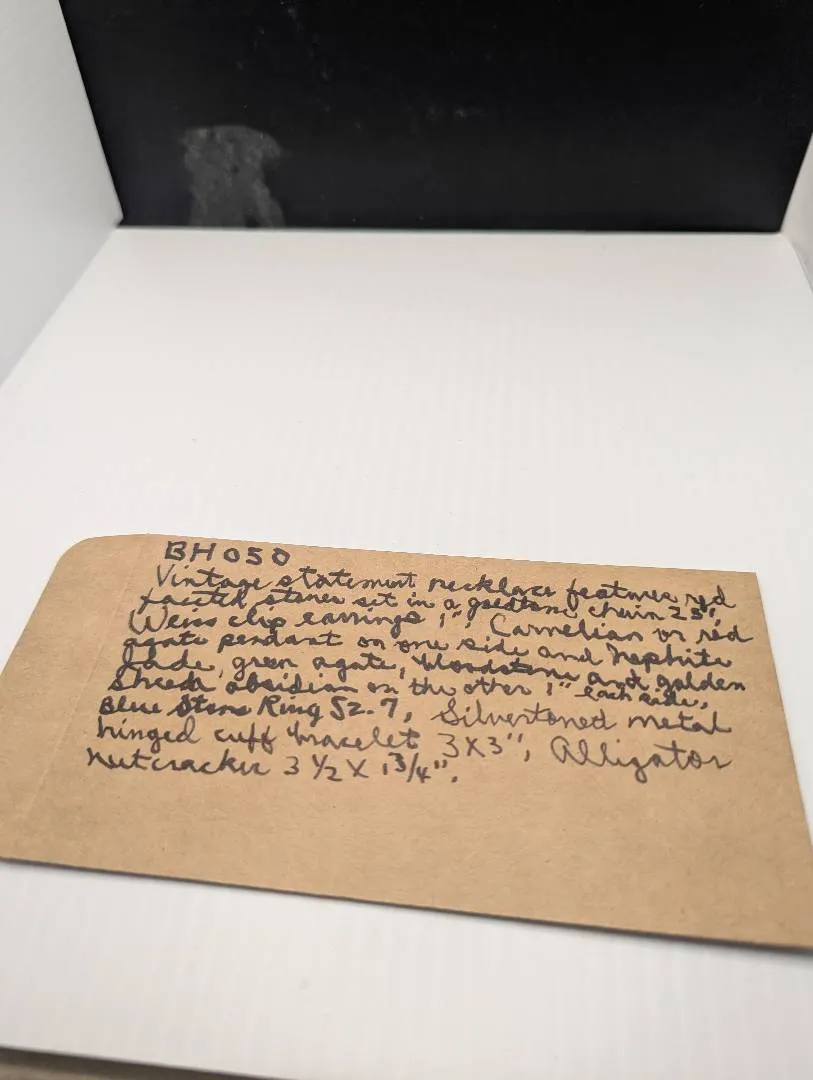 BH050
Vintage statement necklace features red
faceted stones set in a goldtone, chain 23",
Weiss clip earrings 1", Carnelian or red
agate pendant on one side and Nephrite
Jade, green agate, bloodstone and golden
sheen obsidian on the other 1" each side,
Blue Stone Ring SZ.7, Silvertoned metal
hinged cuff bracelet 3X3", Alligator
nutcracker 3 1/2 X 1 3/4".